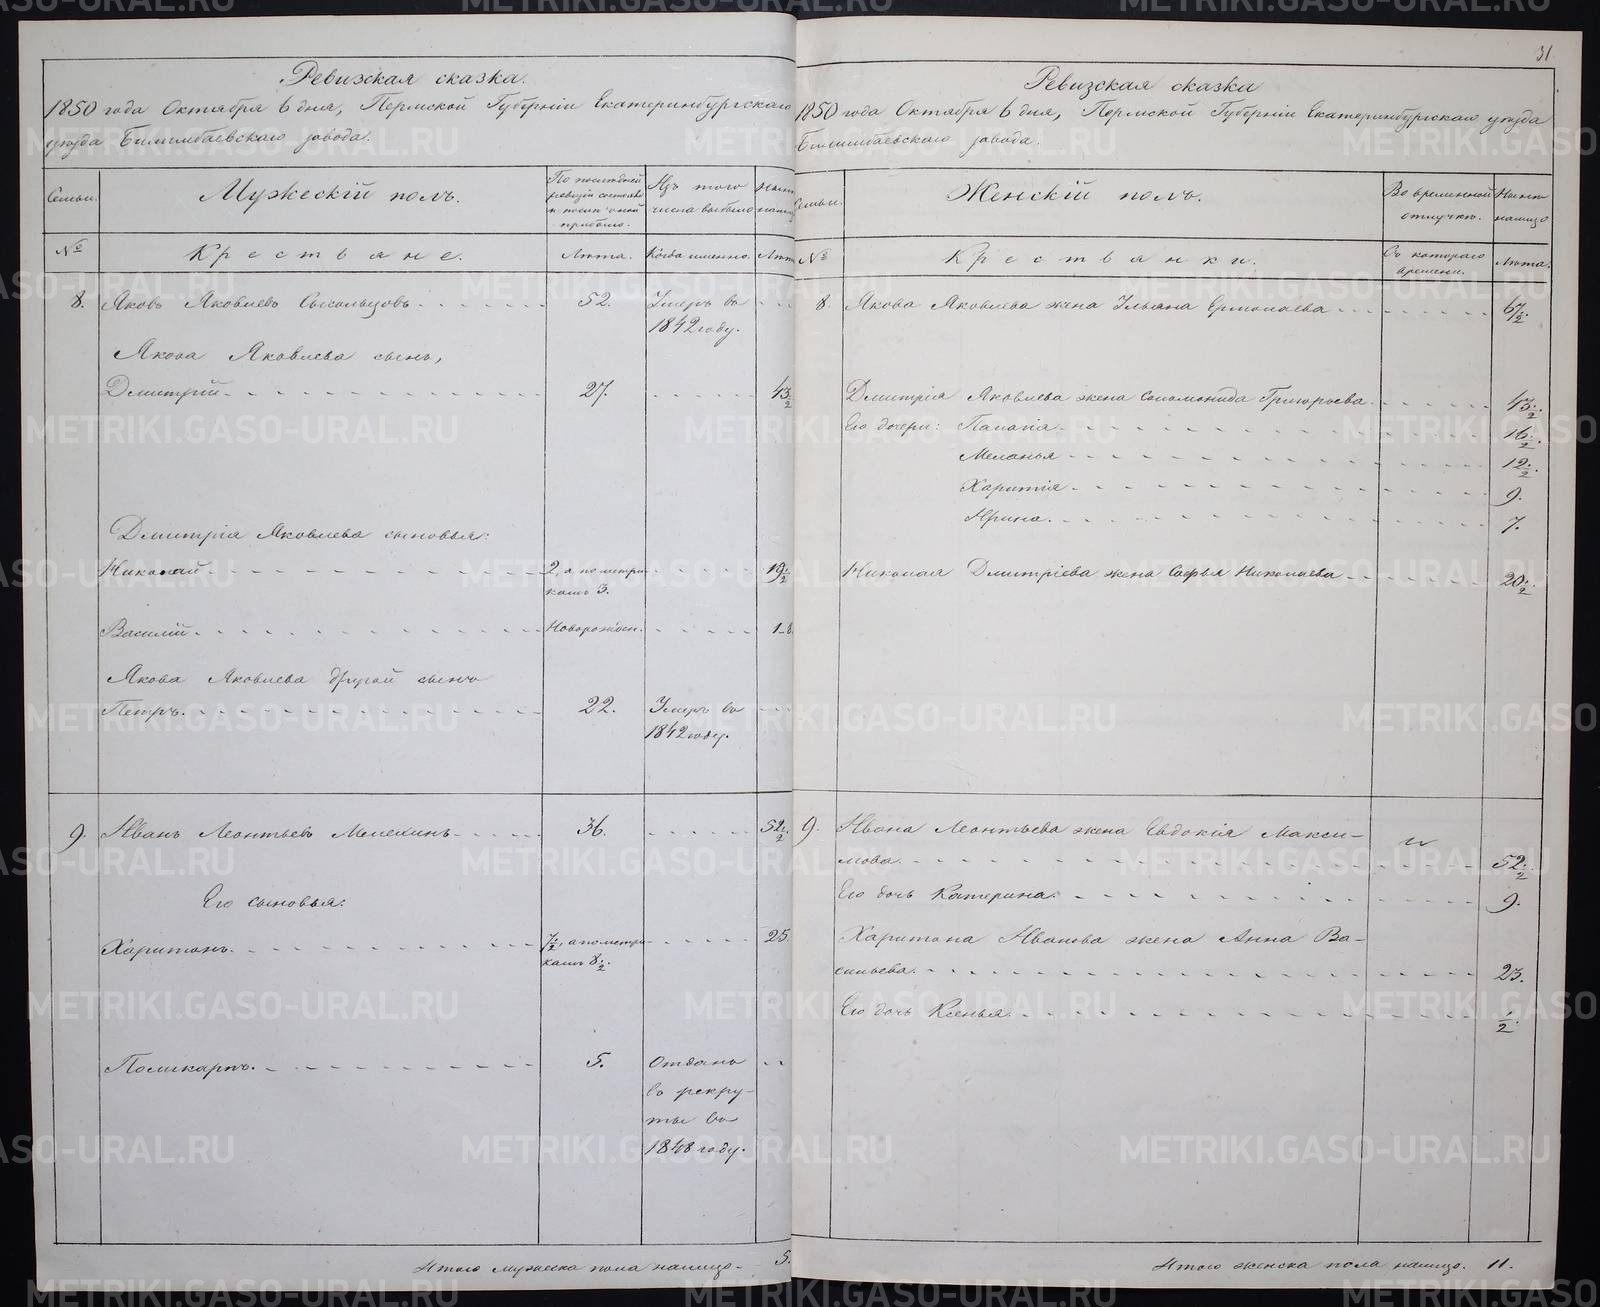 Ревизская сказка.
1850 года Октября 6 дня, Пермской Губерніи Екатеринбургскаго
уѣзда Билимбаевскаго завода.
Семьи.
Мужескій полъ.
По послѣдней
ревизіи состояло
и послѣ оной
прибыло.
Изъ того
числа выбыло
№
Крестьяне.
Лѣта.
Когда именно.
Лѣта
8. Яковъ Яковлевъ Сысольцовъ 52. Умеръ въ
1842 году.
Якова Яковлева сынъ,
Дмитрій 27. 43 1/2
Дмитрія Яковлева сыновья:
Николай 2, а по метри-
камъ 3. 19 1/2
Василій Новорожден. 1-8
Якова Яковлева другой сынъ
Петръ. 22. Умеръ въ
1842 году.
9. Иванъ Леонтьевъ Мелехинъ 36. 52 1/2
Его сыновья:
Харитонъ 7 1/2, а по метри-
камъ 8 1/2. 25.
Поликарпъ. 5. Отданъ
въ рекру-
ты въ
1848 году.
Итого мужеска пола налицо 5.
31.
Ревизская сказка
1850 года Октября 6 дня, Пермской Губерніи Екатеринбургскаго уѣзда
Билимбаевскаго завода.
Семьи.
Женскій полъ.
Во временной
отлучкѣ.
Нынѣ
налицо
№
Крестьянки.
Съ котораго
времени.
Лѣта.
8. Якова Яковлева жена Ульяна Ермолаева 67 1/2.
Дмитрія Яковлева жена Соломонида Григорьева 43 1/2.
Его дочери: Палагія 16 1/2.
Меланья 12 1/2.
Харитія 9.
Ирина. 7.
Николая Дмитріева жена Софья Николаева 20 1/2.
9. Ивана Леонтьева жена Евдокія Макси-
мова. 52 1/2.
Его дочь Катерина. 9.
Харитона Иванова жена Анна Ва-
сильева. 23.
Его дочь Ксенья. 1/2.
Итого женска пола налицо. 11.
METRIKI.GASO-URAL.RU